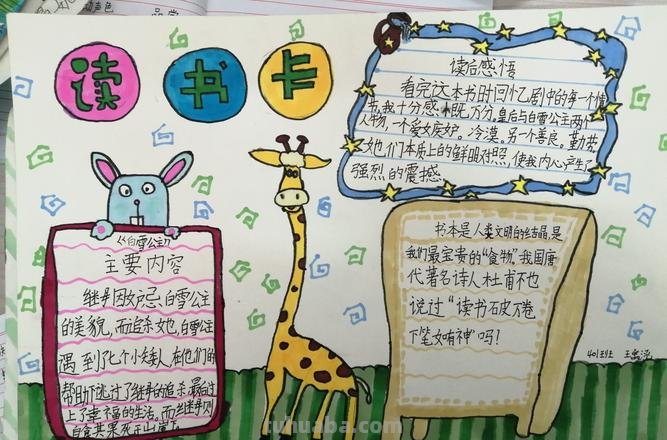 读书卡
读后感悟
看完这本书时回忆剧中的每一个情
节,我十分感慨万分。皇后与白雪公主两个
人物,一个爱女嫉妒。冷漠。另一个善良。勤劳
她们本质上的鲜明对照,使我内心产生了
强烈的震撼
《白雪公主》
主要内容
继母因妒忌白雪公主
的美貌,而追杀她,白雪公主
遇到了七个小矮人在他们的
帮助下逃过了继母的追杀最后过
上了幸福的生活,而继母则
自食其果死于山崖下
书本是人类文明的结晶,是
我们最宝贵的“食物”我国唐
代著名诗人杜甫不也
说过“读书破万卷
下笔如有神”吗!
401班
tuhuaba.com